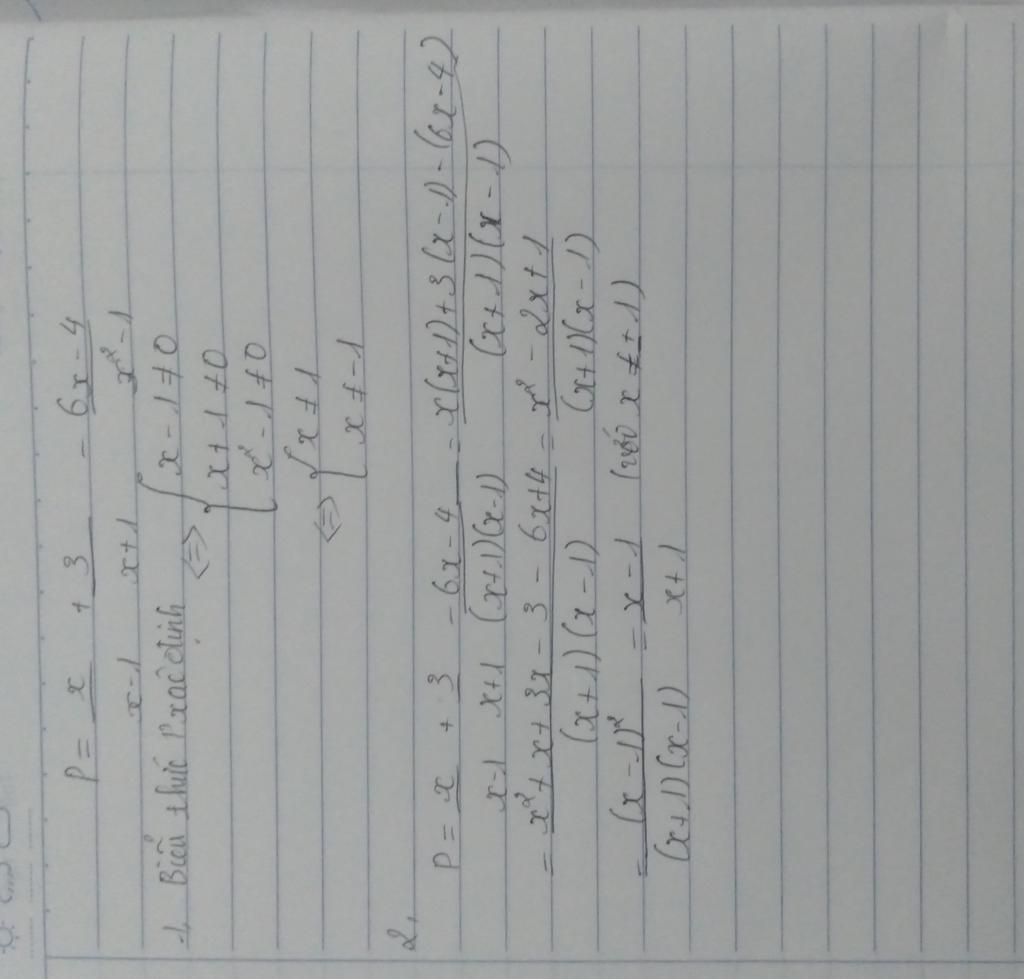 P = x/(x-1) + 3/(x+1) - (6x-4)/(x²-1)
1, Biểu thức P xác định
<=> { x-1≠0
x+1≠0
x²-1≠0
<=> { x≠1
x≠-1
2,
P = x/(x-1) + 3/(x+1) - (6x-4)/((x+1)(x-1)) = (x(x+1)+3(x-1)-(6x-4))/((x+1)(x-1))
= (x²+x+3x-3-6x+4)/((x+1)(x-1)) = (x²-2x+1)/((x+1)(x-1))
= (x-1)²/((x+1)(x-1)) = (x-1)/(x+1) (với x≠±1)